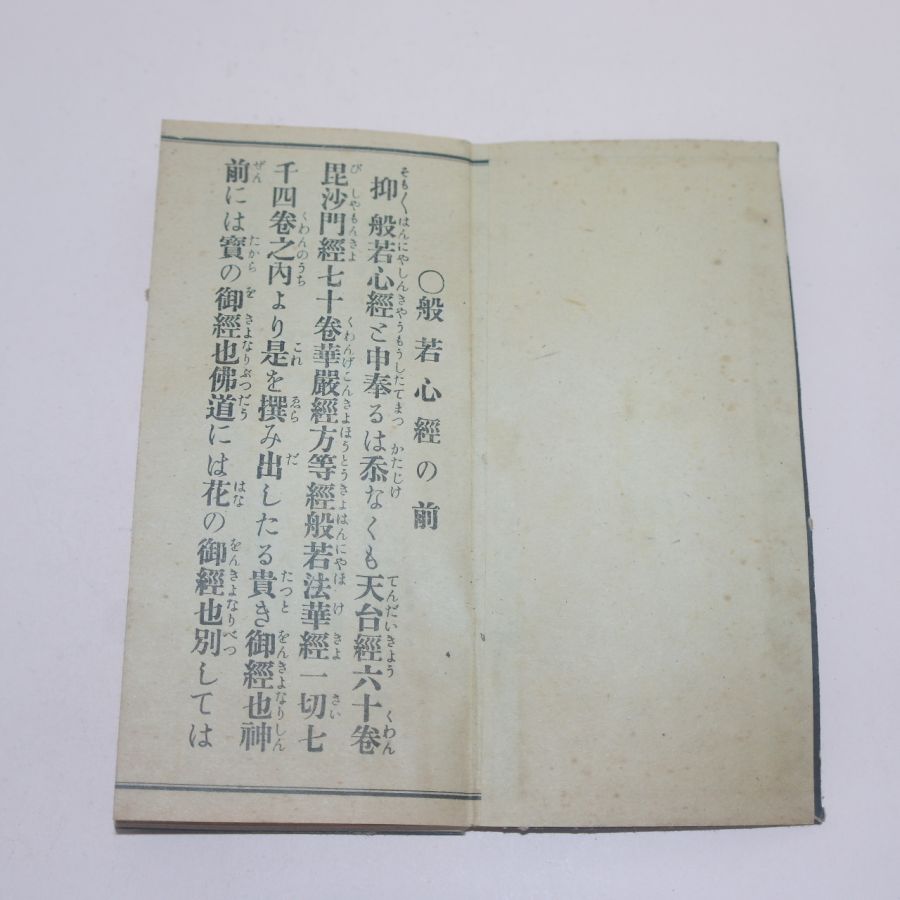 〇般若心經の前
抑般若心經と申奉るは忝なくも天台經六十卷
毘沙門經七十卷華嚴經方等經般若法華經一切七
千四卷之內より是を撰み出したる貴き御經也神
前には寳の御經也佛道には花の御經也別しては